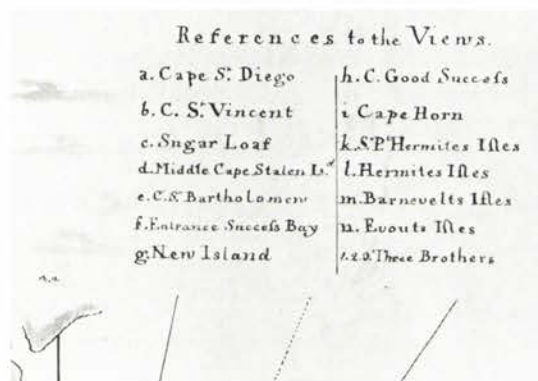 References to the Views.
a. Cape St. Diego
b. C. St. Vincent
c. Sugar Loaf
d. Middle Cape Staten L.d
e. C. St. Bartholomew
f. Entrance Succeſs Bay
g. New Island
h. C. Good Succeſs
i Cape Horn
k. St. P.t Hermites Iſles
l. Hermites Iſles
m. Barnevelts Iſles
n. Evouts Iſles
1.2.3. Three Brothers